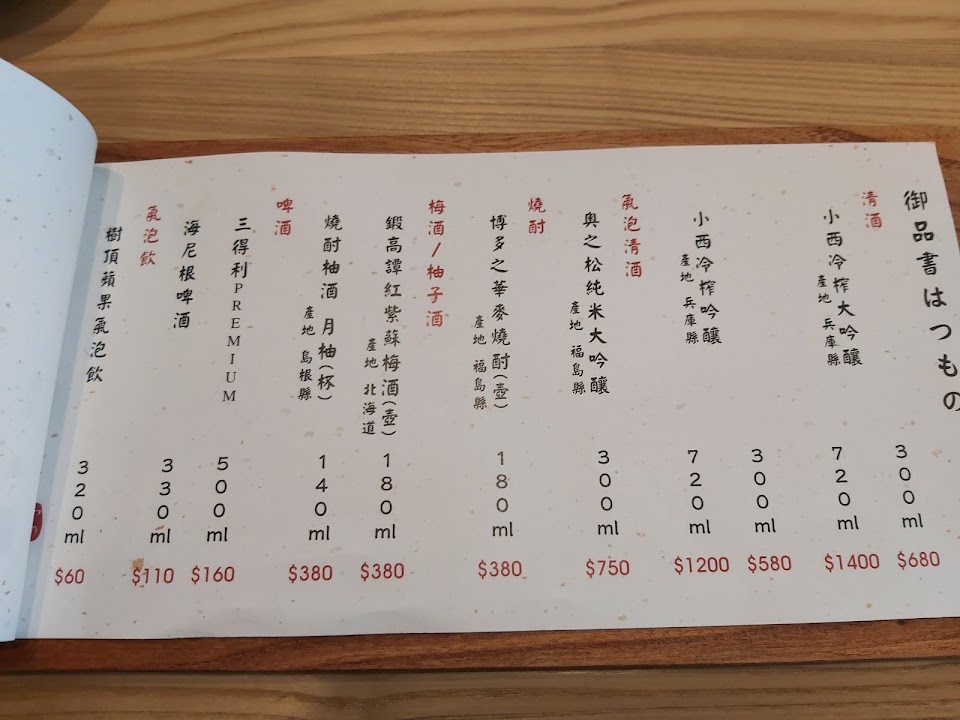 御品書はつもの
清酒
小西冷榨大吟釀
產地 兵庫縣
300ml
$680
720ml
$1400
小西冷榨吟釀
產地 兵庫縣
300ml
$580
720ml
$1200
氣泡清酒
奧之松純米大吟釀
產地 福島縣
300ml
$750
燒酎
博多之華麥燒酎(壺)
產地 福島縣
180ml
$380
梅酒/柚子酒
鍛高譚紅紫蘇梅酒(壺)
產地 北海道
180ml
$380
燒酎柚酒 月柚(杯)
產地 島根縣
140ml
$380
啤酒
三得利PREMIUM
500ml
$160
海尼根啤酒
330ml
$110
氣泡飲
樹頂蘋果氣泡飲
320ml
$60